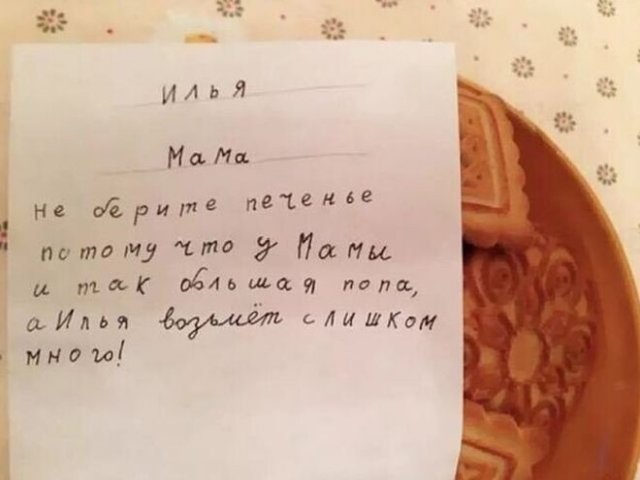 Илья
Мама
не берите печенье
потому что у Мамы
и так большая попа,
а Илья возьмёт слишком
много!